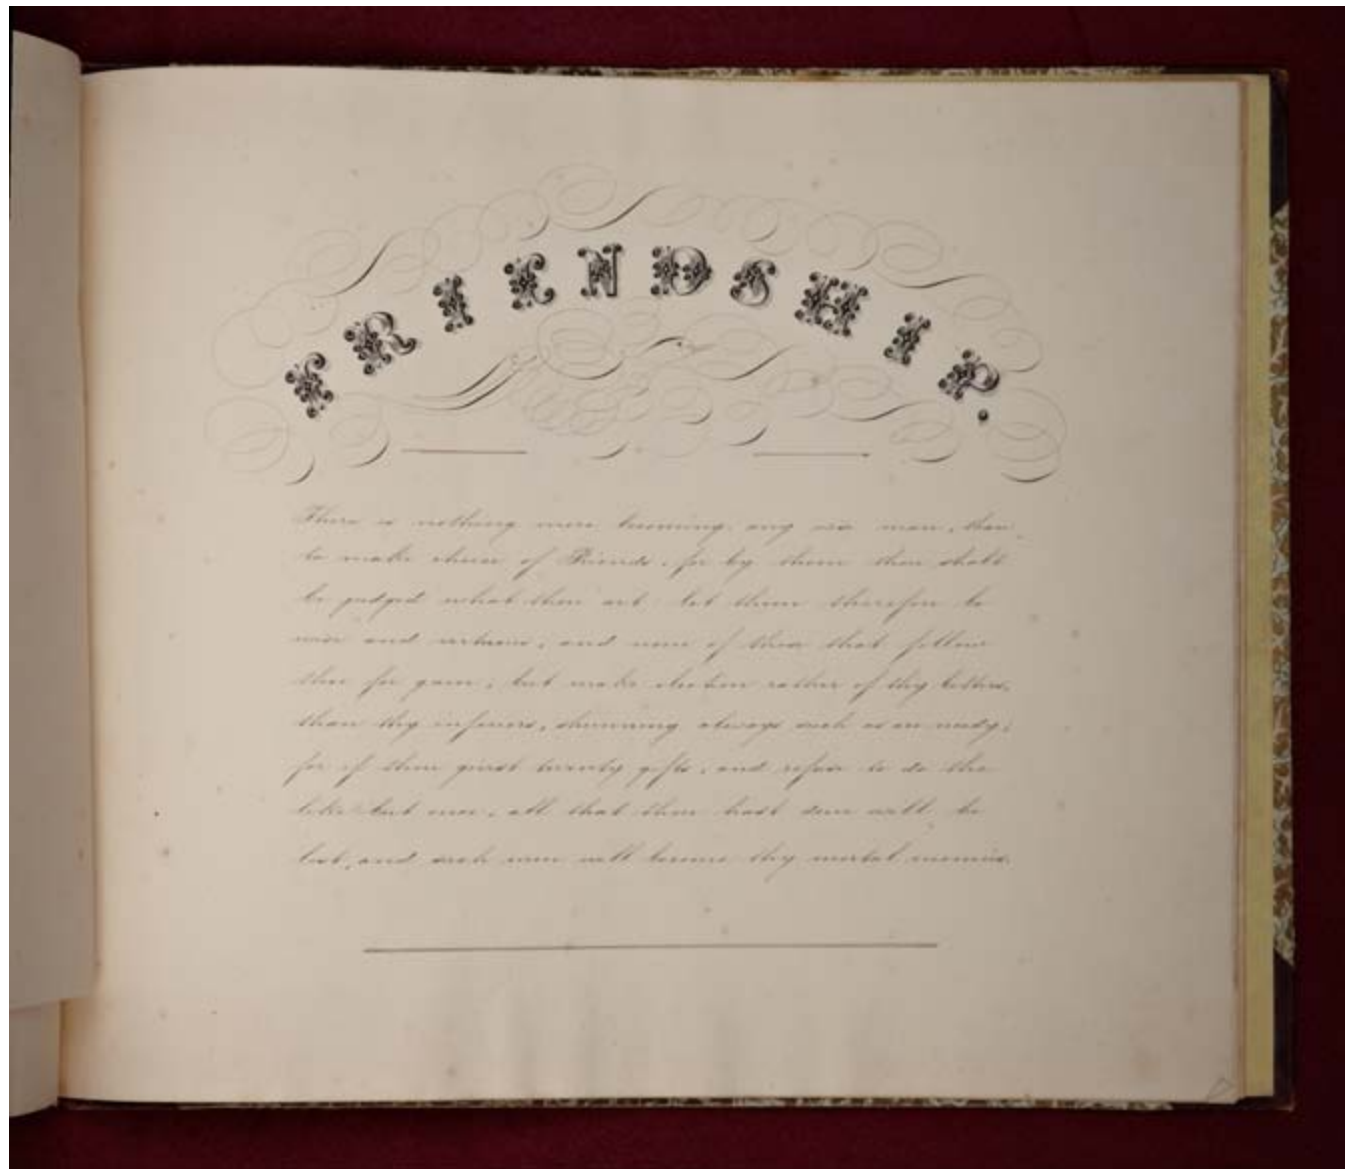 FRIENDSHIP.
There is nothing more becoming any wise man, than
to make choice of Friends, for by them thou shalt
be judged what thou art: let them therefore be
wise and virtuous, and none of those that follow
thee for gain; but make election rather of thy betters,
than thy inferiors, shunning always such as are needy;
for if thou givest twenty gifts, and refuse to do the
like but once, all that thou hast done will be
lost, and such men will become thy mortal enemies.